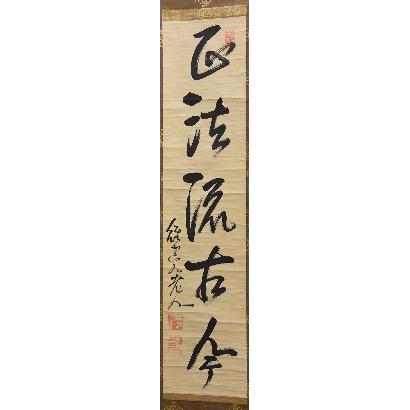 正法流古今
老人